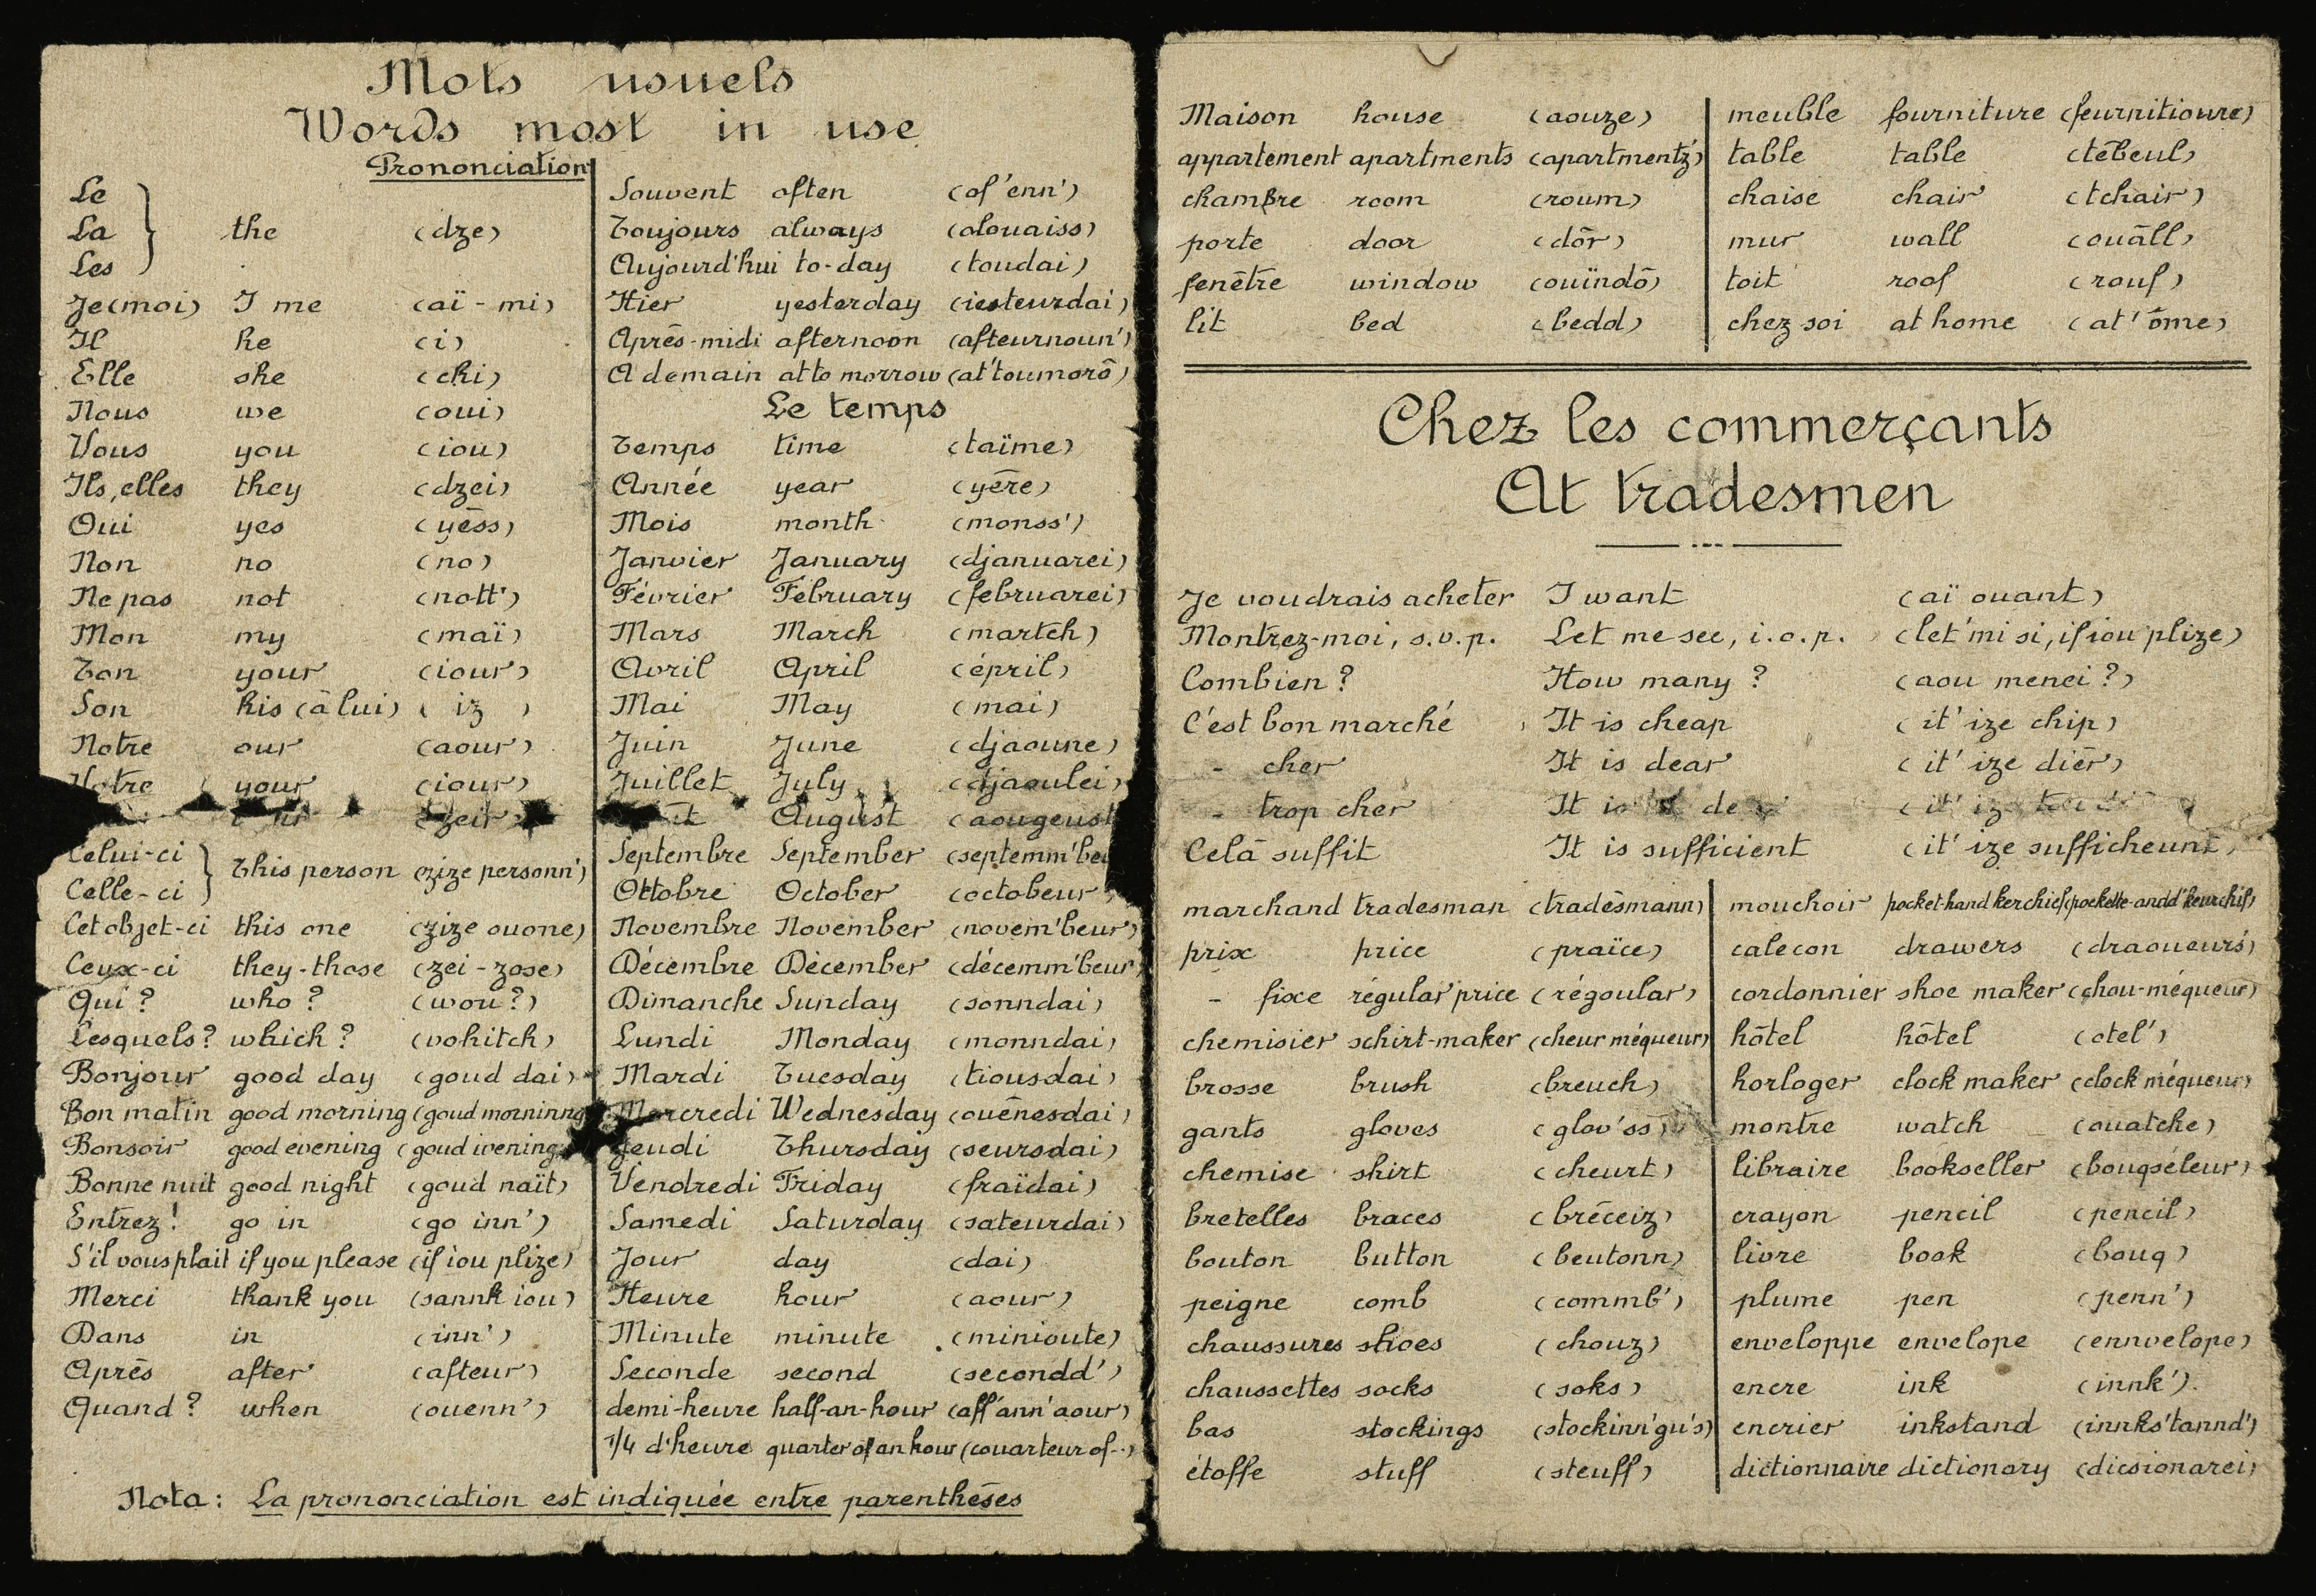 Mots usuels
Words most in use
Prononciation
Le
La the (dze)
Les
Je (moi) I me (aï - mi)
Il he (i)
Elle she (chi)
Nous we (oui)
Vous you (iou)
Ils, elles they (dzei)
Oui yes (yēss)
Non no (no)
Ne pas not (nott')
Mon my (maï)
Ton your (iour)
Son his (ā lui) ( iz )
Notre our (aour)
Votre your (iour)
Celui-ci
This person (zize personn')
Celle-ci
Cet objet-ci this one (zize ouone)
Ceux-ci they-those (zei - zose)
Qui ? who ? (wou ?)
Lesquels ? which ? (vohitch)
Bonjour good day (goud dai)
Bon matin good morning (goud morninng
Bonsoir good evening (goud ivening
Bonne nuit good night (goud naït)
Entrez ! go in (go inn')
S'il vous plait if you please (if iou plize)
Merci thank you (sannk iou)
Dans in (inn')
Aprēs after (afteur)
Quand ? when (ouenn')
Souvent often (of'enn')
Toujours always (olouaiss)
Aujourd'hui to-day (toudai)
Hier yesterday (iesteurdai)
Aprēs-midi afternoon (afteurnoun')
A demain at to morrow (at'toumorō)
Le temps
Temps time (taïme)
Année year (yēre)
Mois month (monss')
Janvier January (djanuarei)
Février February (februarei)
Mars March (martch)
Avril April (épril)
Mai May (mai)
Juin June (djaoune)
Juillet July (djaoulei)
August (aougeust
Septembre September (septemm'beu
Ottobre October (octobeur)
Novembre November (novem'beur)
Décembre Décember (décemm'beur)
Dimanche Sunday (sonndai)
Lundi Monday (monndai)
Mardi Tuesday (tiousdai)
Mercredi Wednesday (ouēnesdai)
Jeudi Thursday (seursdai)
Vendredi Friday (fraïdai)
Samedi Saturday (sateurdai)
Jour day (dai)
Heure hour (aour)
Minute minute (minioute)
Seconde second (secondd')
demi-heure half-an-hour (aff'ann'aour)
1/4 d'heure quarter of an hour (couarteur of--)
Nota : La prononciation est indiquée entre parenthēses
Maison house (aouze)
appartement apartments (apartmentz')
chambre room (roum)
porte door (dōr)
fenētre window (ouïndō)
lit bed (bedd)
meuble fourniture (feurnitioure)
table table (tēbeul)
chaise chair (tchair)
mur wall (ouāll)
toit roof (rouf)
chez soi at home (at' ōme)
Chez les commerçants
At tradesmen
Je voudrais acheter I want (aï ouant)
Montrez-moi, s.v.p. Let me see, i.o.p. (let'mi si, if iou plize)
Combien ? How many ? (aou menei ?)
C'est bon marché It is cheap (it' ize chip)
- cher It is dear (it' ize diēr)
- trop cher It is
Celā suffit It is sufficient (it' ize sufficheunt)
marchand tradesman (tradēsmann)
prix price (praïce)
- fixe régular price (régoular)
chemisier schirt-maker (cheur méqueur)
brosse brush (breuch)
gants gloves (glov'ss)
chemise shirt (cheurt)
bretelles braces (brēceiz)
bouton button (beutonn)
peigne comb (commb')
chaussures shoes (chouz)
chaussettes socks (soks)
bas stockings (stockinn'gu's)
étoffe stuff (steuff)
mouchoir pocket-hand kerchief (pockette-andd'keurchif)
calecon drawers (draoueurs')
cordonnier shoe maker (chou-méqueur)
hōtel hōtel (otel')
horloger clock maker (clock méqueur)
montre watch (ouatche)
libraire bookseller (bouqséleur)
crayon pencil (pencil)
livre book (bouq)
plume pen (penn')
enveloppe envelope (ennvelope)
encre ink (innk').
encrier inkstand (innks'tannd')
dictionnaire dictionary (dicsionarei)